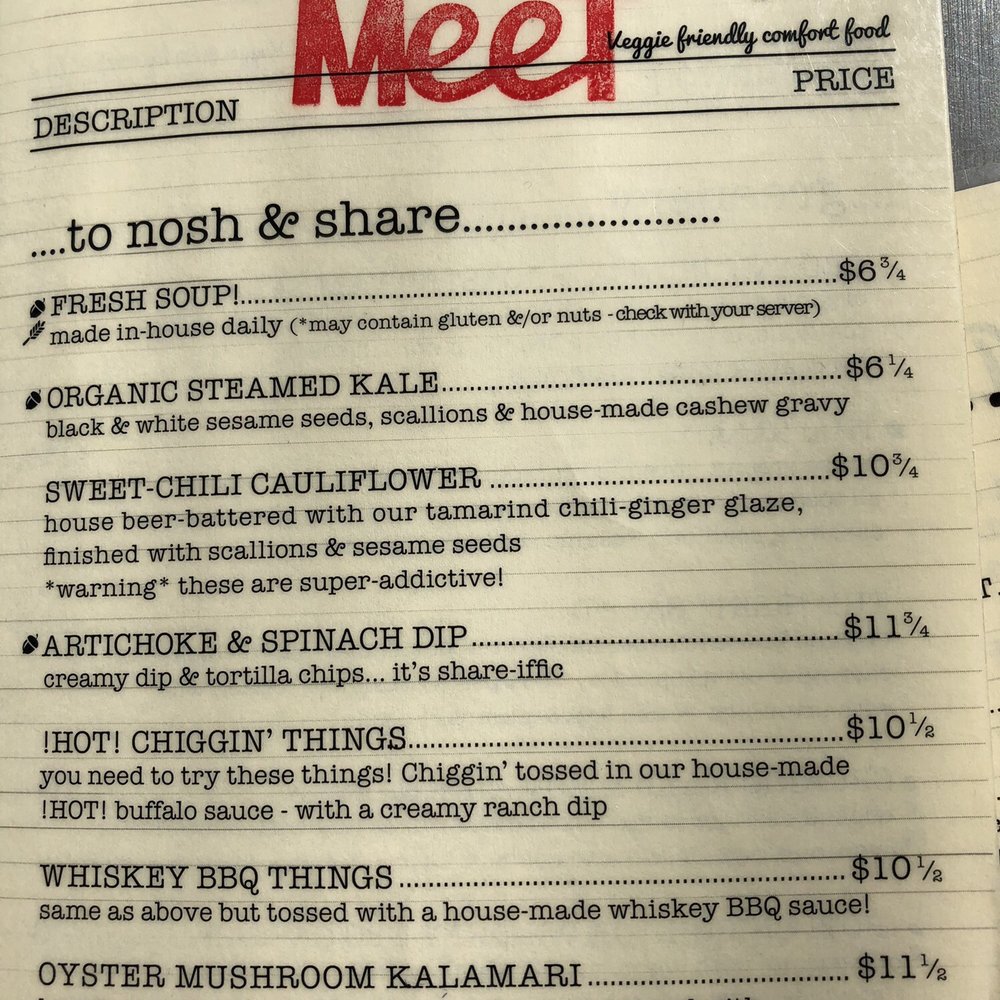 Meet
Veggie friendly comfort food
DESCRIPTION PRICE
....to nosh & share.....................
FRESH SOUP!..........$6¾
made in-house daily (*may contain gluten &/or nuts - check with your server)
ORGANIC STEAMED KALE..........$6¼
black & white sesame seeds, scallions & house-made cashew gravy
SWEET-CHILI CAULIFLOWER ..........$10¾
house beer-battered with our tamarind chili-ginger glaze,
finished with scallions & sesame seeds
*warning* these are super-addictive!
ARTICHOKE & SPINACH DIP..........$11¾
creamy dip & tortilla chips... it's share-iffic
!HOT! CHIGGIN' THINGS..........$10½
you need to try these things! Chiggin' tossed in our house-made
!HOT! buffalo sauce - with a creamy ranch dip
WHISKEY BBQ THINGS ..........$10½
same as above but tossed with a house-made whiskey BBQ sauce!
OYSTER MUSHROOM KALAMARI..........$11½